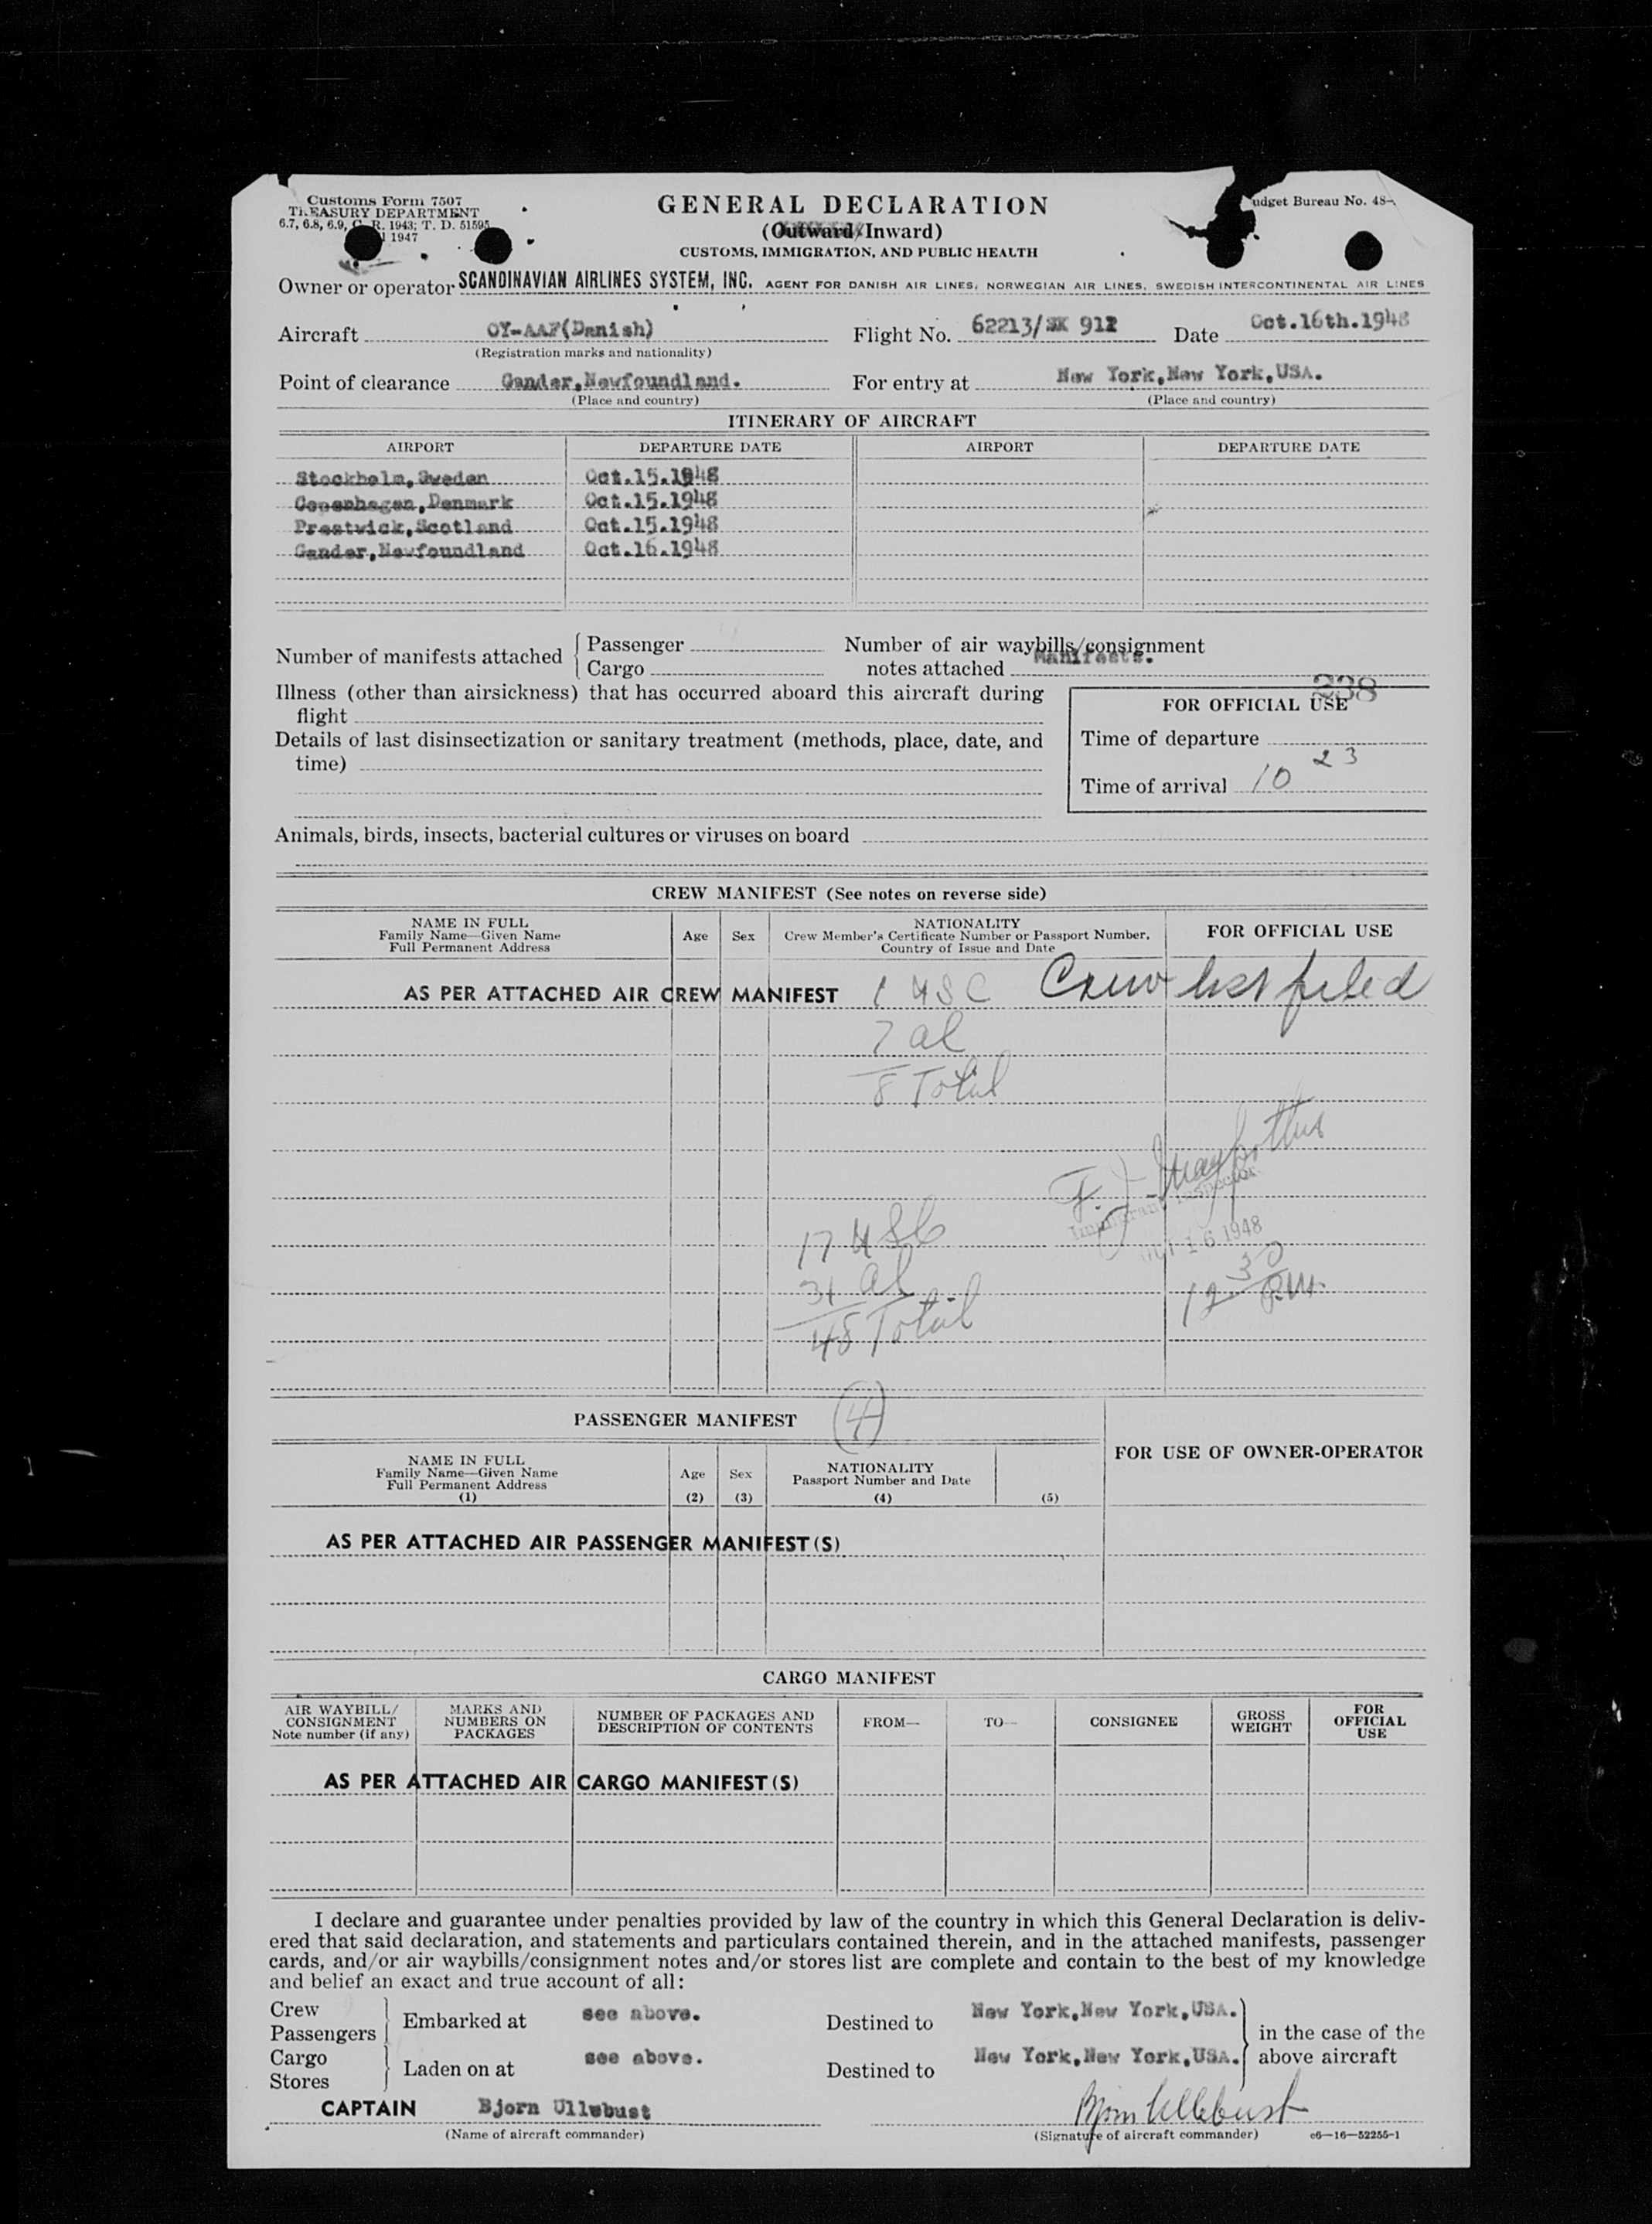 Customs Form 7507
TREASURY DEPARTMENT
6.7, 6.8, 6.9, C. R. 1943; T. D. 51595
1947
GENERAL DECLARATION
(Outward/Inward)
CUSTOMS, IMMIGRATION, AND PUBLIC HEALTH
udget Bureau No. 48-
Owner or operator SCANDINAVIAN AIRLINES SYSTEM, INC. AGENT FOR DANISH AIR LINES, NORWEGIAN AIR LINES, SWEDISH INTERCONTINENTAL AIR LINES
Aircraft OY-AAF(Danish) Flight No. 62213/SK 912 Date Oct.16th.1948
(Registration marks and nationality)
Point of clearance Gander,Newfoundland. For entry at New York,New York,USA.
(Place and country) (Place and country)
ITINERARY OF AIRCRAFT
AIRPORT DEPARTURE DATE AIRPORT DEPARTURE DATE
Stockholm,Sweden Oct.15.1948
Copenhagen,Denmark Oct.15.1948
Prestwick,Scotland Oct.15.1948
Gander,Newfoundland Oct.16.1948
Number of manifests attached { Passenger Number of air waybills/consignment
Cargo notes attached Manifests.
Illness (other than airsickness) that has occurred aboard this aircraft during
flight
238
FOR OFFICIAL USE
Details of last disinsectization or sanitary treatment (methods, place, date, and
time)
Time of departure
Time of arrival 10 23
Animals, birds, insects, bacterial cultures or viruses on board
CREW MANIFEST (See notes on reverse side)
NAME IN FULL
Family Name—Given Name
Full Permanent Address
Age Sex
NATIONALITY
Crew Member's Certificate Number or Passport Number,
Country of Issue and Date
FOR OFFICIAL USE
AS PER ATTACHED AIR CREW MANIFEST 1 USC Crew list filed
7 al
8 Total
Immigrant Inspector
OCT 16 1948
17 USC
31 al
48 Total
12 30 P.M.
PASSENGER MANIFEST (4)
NAME IN FULL
Family Name—Given Name
Full Permanent Address
(1)
Age
(2)
Sex
(3)
NATIONALITY
Passport Number and Date
(4)
(5)
FOR USE OF OWNER-OPERATOR
AS PER ATTACHED AIR PASSENGER MANIFEST(S)
CARGO MANIFEST
AIR WAYBILL/
CONSIGNMENT
Note number (if any)
MARKS AND
NUMBERS ON
PACKAGES
NUMBER OF PACKAGES AND
DESCRIPTION OF CONTENTS
FROM—
TO—
CONSIGNEE
GROSS
WEIGHT
FOR
OFFICIAL
USE
AS PER ATTACHED AIR CARGO MANIFEST(S)
I declare and guarantee under penalties provided by law of the country in which this General Declaration is deliv-
ered that said declaration, and statements and particulars contained therein, and in the attached manifests, passenger
cards, and/or air waybills/consignment notes and/or stores list are complete and contain to the best of my knowledge
and belief an exact and true account of all:
Crew
Passengers } Embarked at see above. Destined to New York,New York,USA.
Cargo
Stores } Laden on at see above. Destined to New York,New York,USA.
in the case of the
above aircraft
CAPTAIN Bjorn Ullebust Bjorn Ullebust
(Name of aircraft commander) (Signature of aircraft commander) c6—16—52255-1